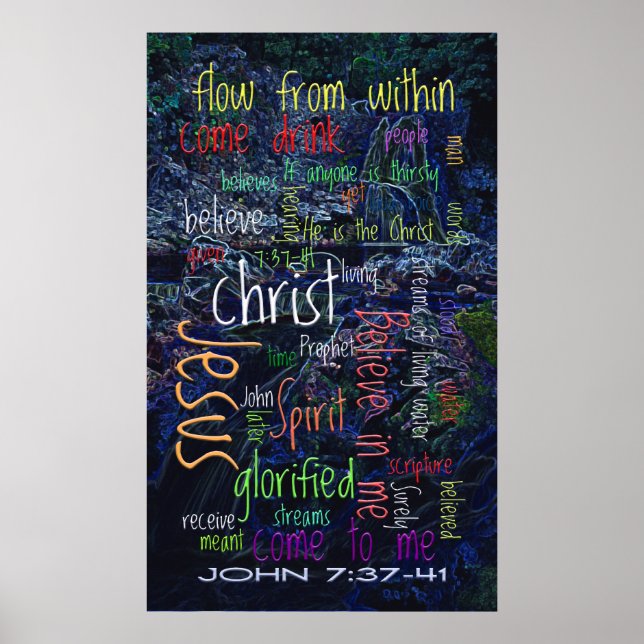 flow from within
come drink
people
man
If anyone is thirsty
believes
hearing
yet
words
believe
He is the Christ
given
7:37-41
living
christ
streams of living water
stood
Jesus
time
Prophet
Believe in me
water
John
later
Spirit
scripture
glorified
Surely
believed
receive
streams
meant
come to me
JOHN 7:37-41